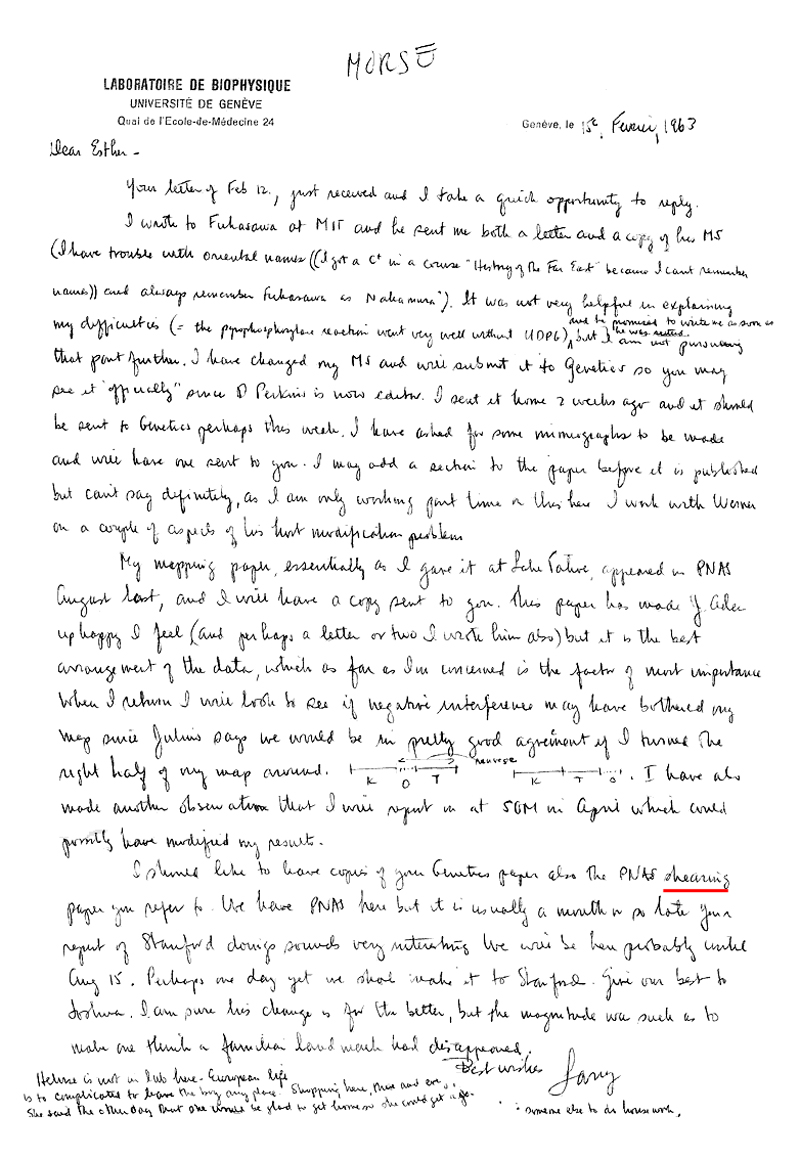 MORSE
LABORATOIRE DE BIOPHYSIQUE
UNIVERSITÉ DE GENÈVE
Quai de l'Ecole-de-Médecine 24
Genève, le 15e. Fevrier, 1963
Dear Esther -
Your letter of Feb 12., just received and I take a quick opportunity to reply.
I wrote to Fukasawa at MIT and he sent me both a letter and a copy of his MS
(I have trouble with oriental names ((I got a C+ in a course "History of the Far East" because I cant remember
names)) and always remember Fukasawa as "Nakamura"). It was not very helpful in explaining
and he promised to write me as soon as
he was rested
my difficulties (= the pyrophosphorylase reaction went very well without UDPG), but I am not pursueing
that part further. I have changed my MS and will submit it to Genetics so you may
see it "officially" since D Perkins is now editor. I sent it home 2 weeks ago and it should
be sent to Genetics perhaps this week. I have asked for some mimeographs to be made
and will have one sent to you. I may add a section to the paper before it is published
but can't say definitely, as I am only working part time on this here I work with Werner
on a couple of aspects of his host modification problem
My mapping paper, essentially as I gave it at appeared in PNAS
August last, and I will have a copy sent to you. This paper has made J. Adler
unhappy I feel (and perhaps a letter or two I wrote him also) but it is the best
arrangement of the data, which as far as I'm concerned is the factor of most importance
When I return I will look to see if negative interference may have bothered my
map since Julius says we would be in pretty good agreement if I turned the
reverse
right half of my map around. K O T K T O . I have also
made another observation that I will report on at SGM in April which could
possibly have modified my results.
I should like to have copies of your Genetics paper also the PNAS shearing
paper you refer to. We have PNAS here but it is usually a month or so late Your
report of Stanford doings sounds very interesting We will be here probably until
Aug 15. Perhaps one day yet we shall make it to Stanford. Give our best to
Joshua. I am sure his change is for the better, but the magnitude was such as to
make one think a familiar land mark had disappeared.
Best wishes
Larry
Helene is not in lab here - European life
is to complicated to leave the boy any place. Shopping here, there and
She said the other day that one would be glad to get home so she could get a go.
: someone else to do housework.